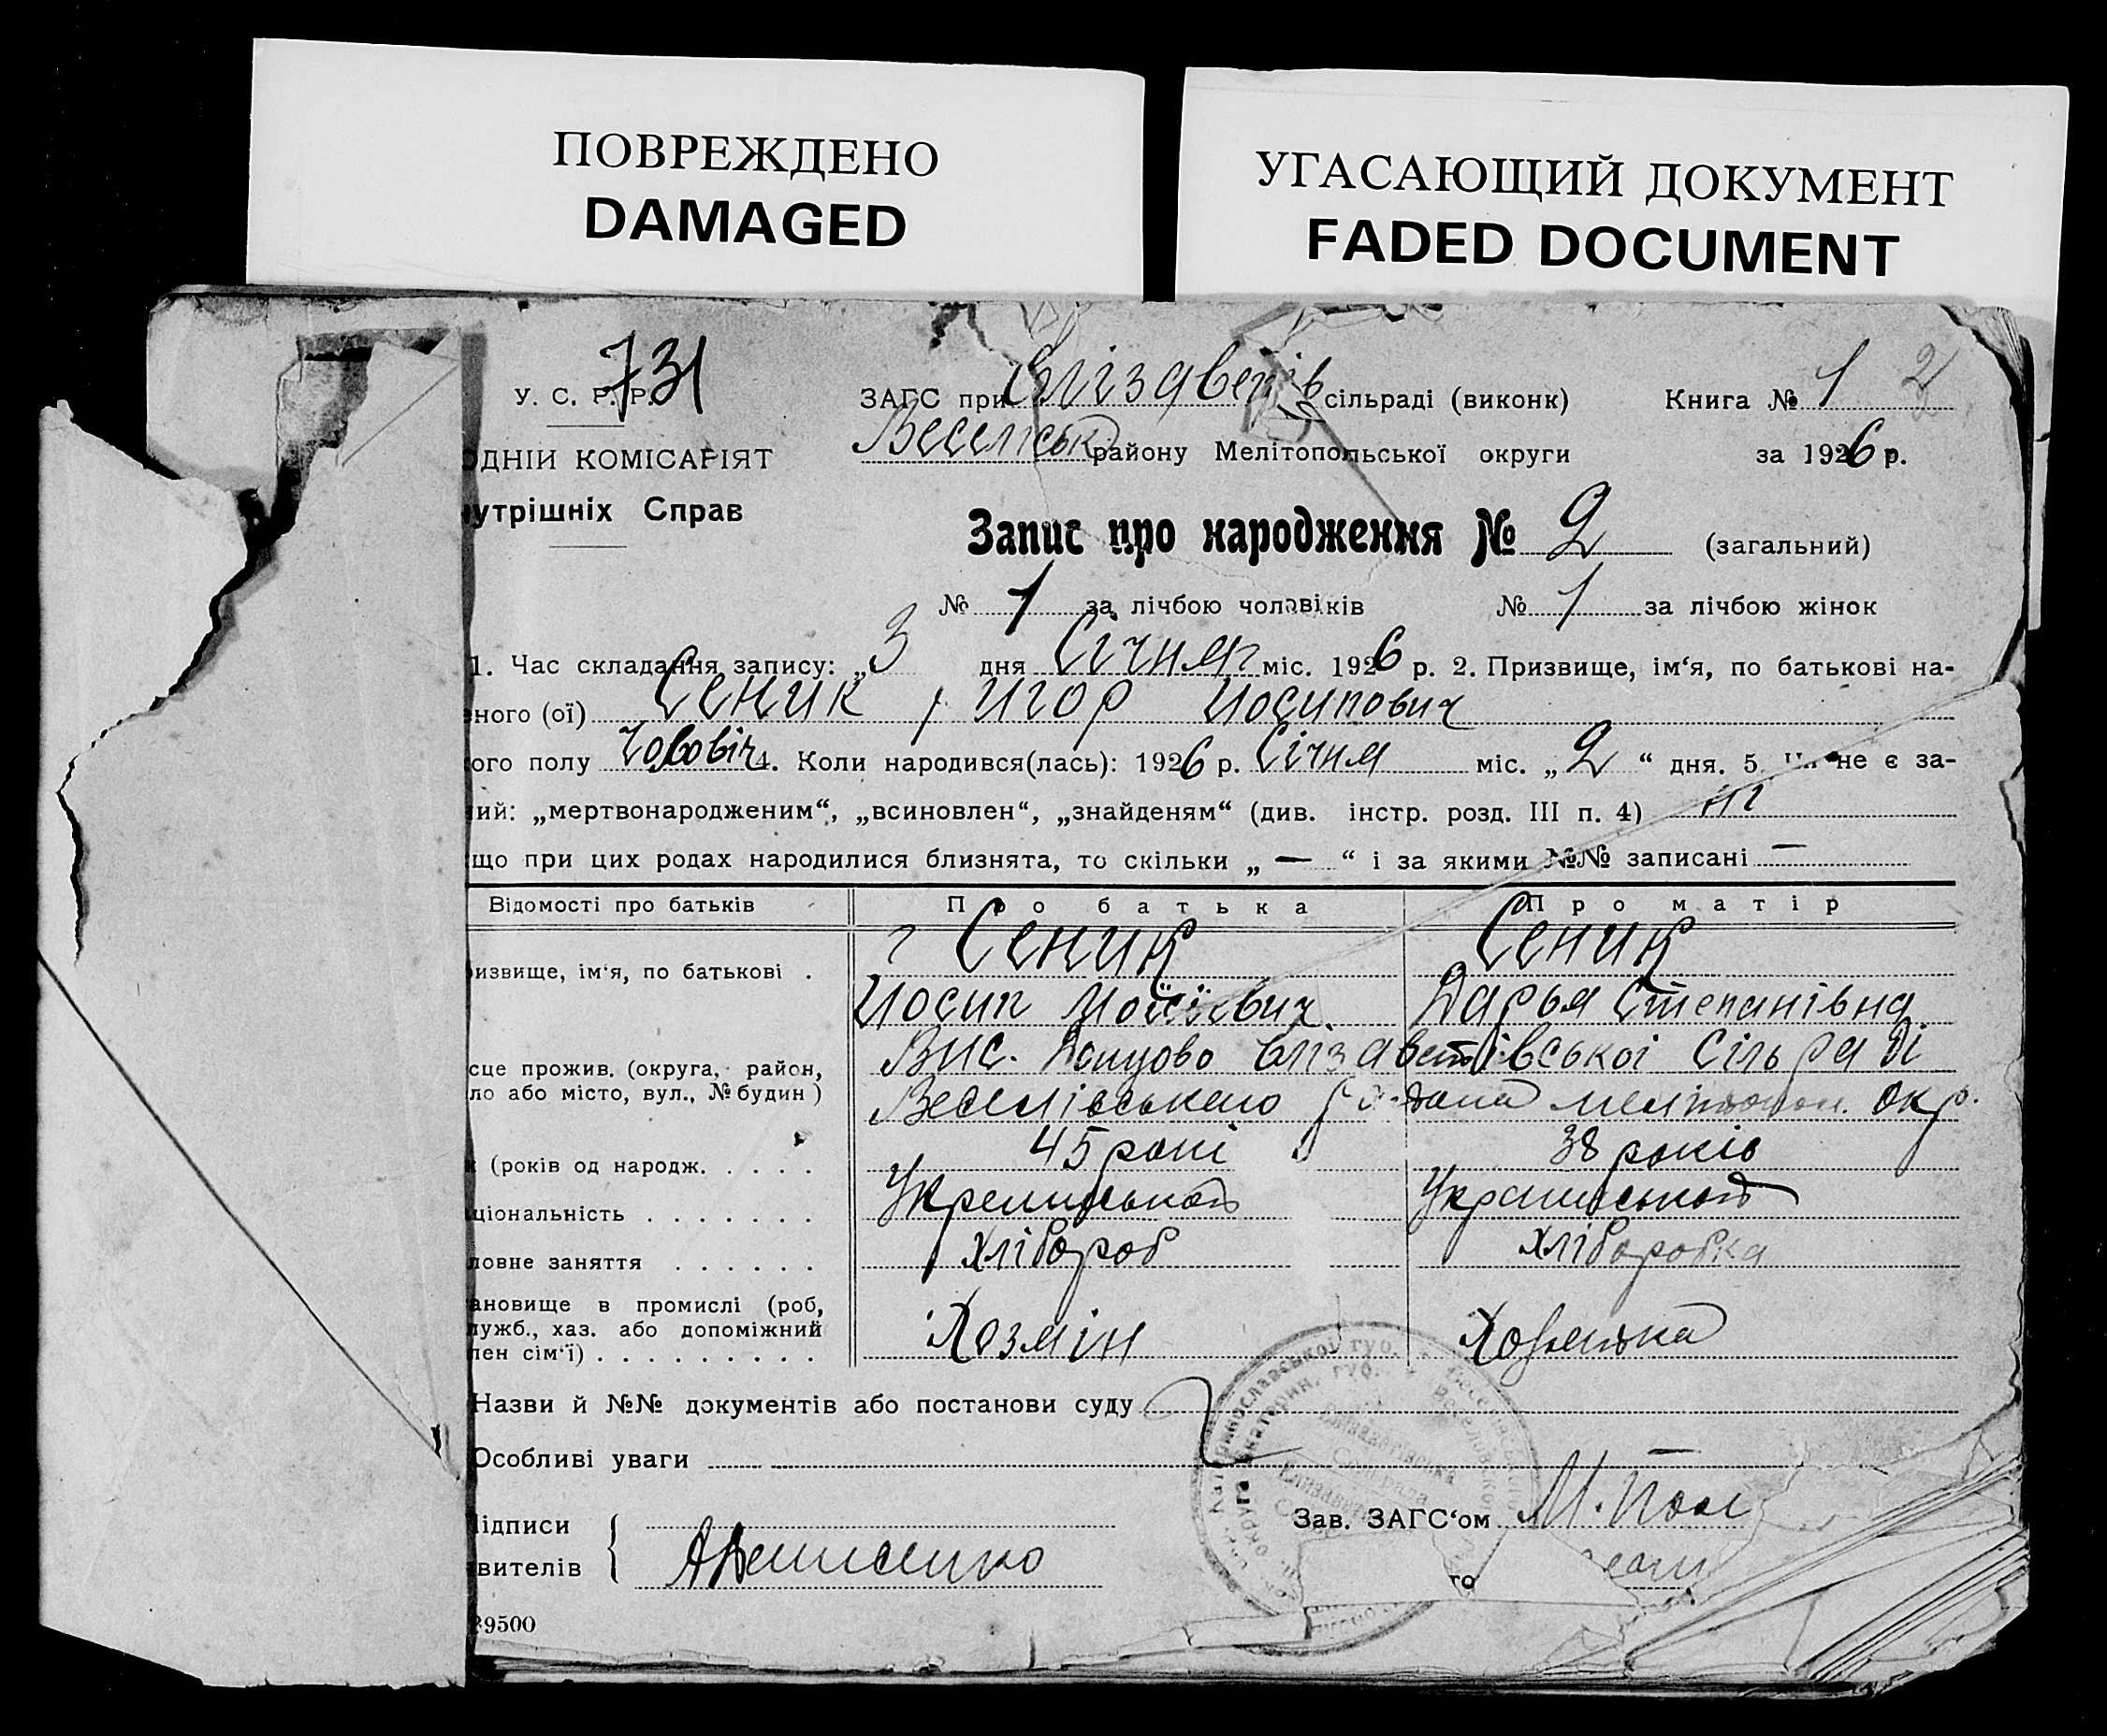 ПОВРЕЖДЕНО
DAMAGED
УГАСАЮЩИЙ ДОКУМЕНТ
FADED DOCUMENT
731
У. С. Р. Р.
ЗАГС при Єлізаветів сільраді (виконк) Книга № 1 2
ОДНІЙ КОМІСАРІЯТ
Веселіськ району Мелітопольської округи за 1926 р.
нутрішніх Справ
Запис про народження № 2 (загальний)
№ 1 за лічбою чоловіків № 1 за лічбою жінок
1. Час складання запису: „3 дня Січня міс. 1926 р. 2. Призвище, ім‘я, по батькові на-
ного (ої) Сеник, Игор Иосипович
ого полу 4. Коли народився(лась): 1926 р. Січня міс. „2“ дня. 5. Чи не є за-
ий: „мертвонародженим“, „всиновлен“, „знайденям“ (див. інстр. розд. III п. 4) ні
що при цих родах народилися близнята, то скільки „ — “ і за якими №№ записані —
Відомості про батьків Про батька Про матір
Сеник Сеник
извище, ім‘я, по батькові .
Иосип Мойсієвич. Дарья Степанівна
сце прожив. (округа, район,
Вис. Єлізаветівської Сільради
ло або місто, вул., № будин)
Веселівського окр.
(років од народж. . . . . 45 рокі 38 років
ціональність . . . . . . .
ловне заняття . . . . . . Хлібороб Хліборобка
ановище в промислі (роб,
лужб., хаз. або допоміжний
лен сім‘ї) . . . . . . . . . Хозяін Хозяйка
Назви й №№ документів або постанови суду
Особливі уваги
ідписи
вителів
Зав. ЗАГС‘ом М.
39500